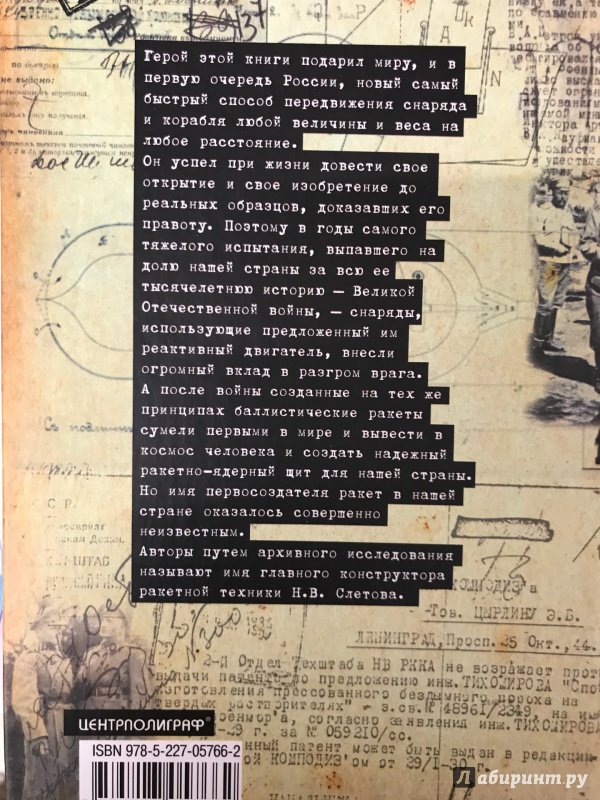 37
Герой этой книги подарил миру, и в
первую очередь России, новый самый
быстрый способ передвижения снаряда
и корабля любой величины и веса на
любое расстояние.
Он успел при жизни довести свое
открытие и свое изобретение до
реальных образцов, доказавших его
правоту. Поэтому в годы самого
тяжелого испытания, выпавшего на
долю нашей страны за всю ее
тысячелетнюю историю — Великой
Отечественной войны, — снаряды,
использующие предложенный им
реактивный двигатель, внесли
огромный вклад в разгром врага.
А после войны созданные на тех же
принципах баллистические ракеты
сумели первыми в мире и вывести в
космос человека и создать надежный
ракетно-ядерный щит для нашей страны.
Но имя первосоздателя ракет в нашей
стране оказалось совершенно
неизвестным.
Авторы путем архивного исследования
называют имя главного конструктора
ракетной техники Н.В. Слетова.
Тов. ЦЫРЛИНУ Э.Б.
ЛЕНИНГРАД, Просп. 25 Окт., 44.
2-й Отдел Техштаба НВ РККА не возражает прот
выдачи патента по предложению инж. ТИХОМИРОВА "Спо
изготовления прессованного бездымного пороха на
твердых растворителях" - з.св. № 48961/2349, на им
согласно заявления инж. ТИХОМИРОВ
29 г. за № 059210/сс.
патент может быть выдан в редакции
КОМПОДИЗ'ом от 29/I-30 г.
ЦЕНТРПОЛИГРАФ®
ISBN 978-5-227-05766-2
Лабиринт.ру